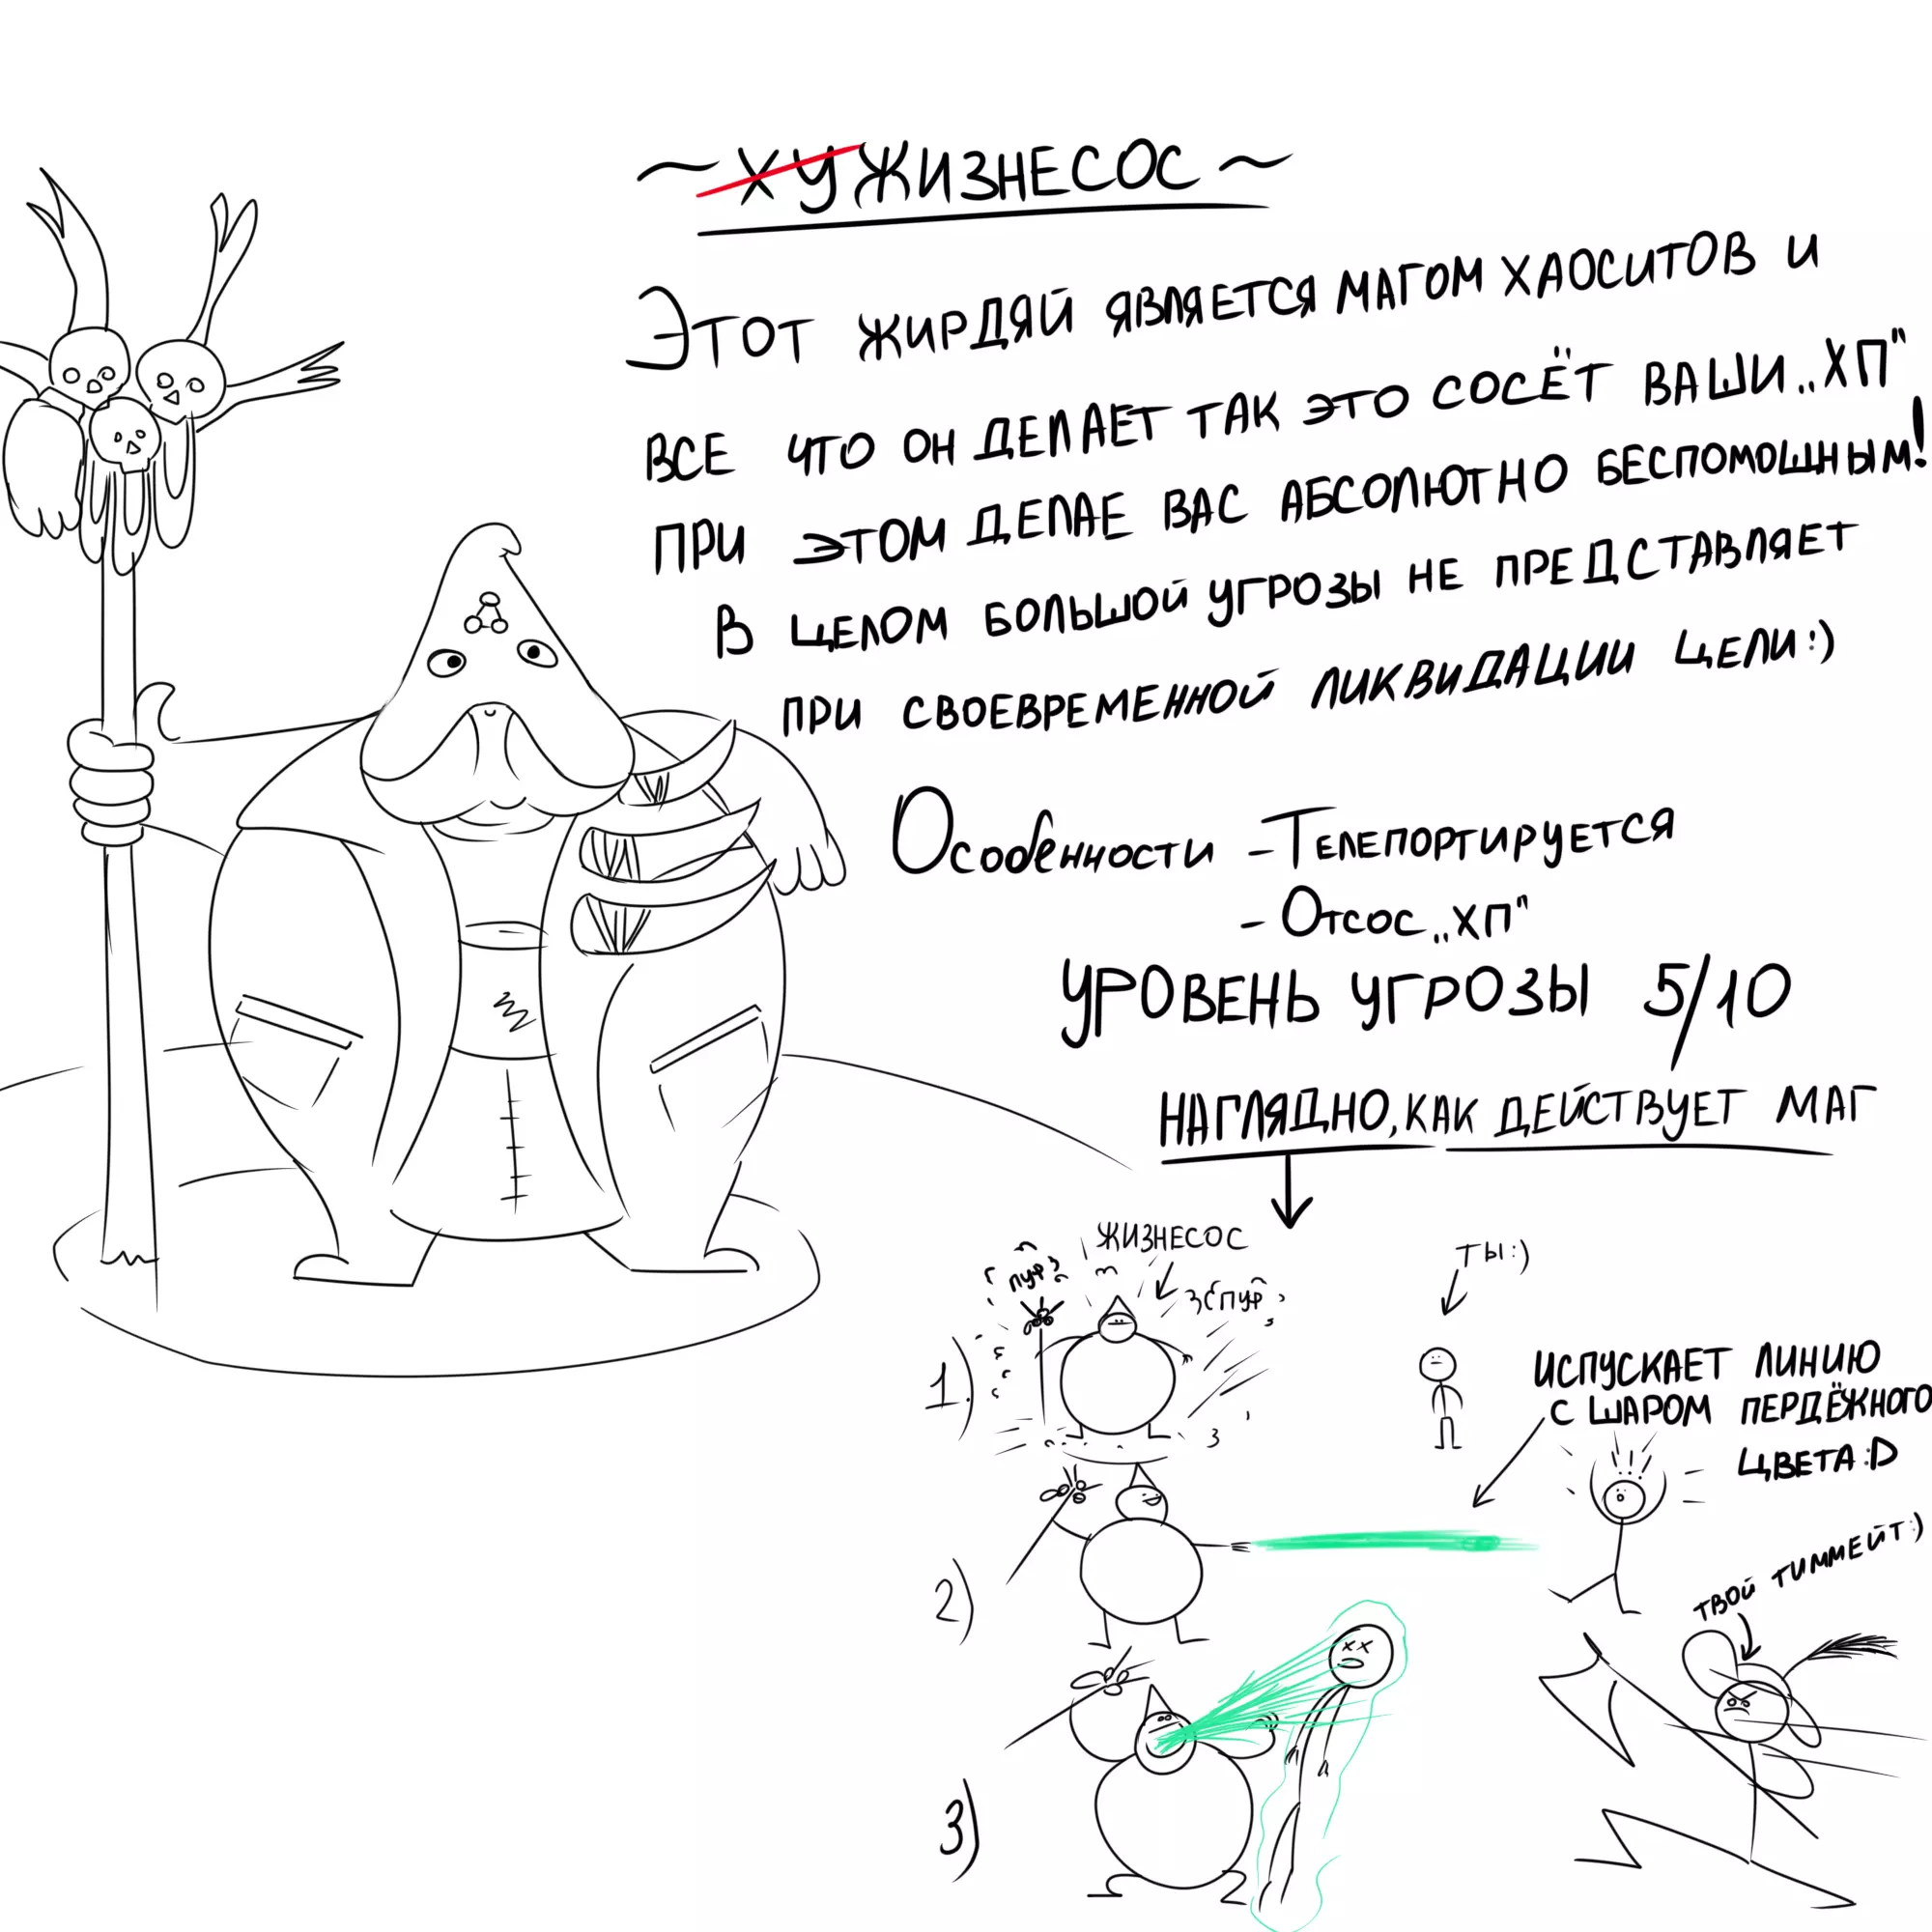 ~ ХУЖИЗНЕСОС ~
ЭТОТ ЖИРДЯЙ ЯВЛЯЕТСЯ МАГОМ ХАОСИТОВ И
ВСЕ ЧТО ОН ДЕЛАЕТ ТАК ЭТО СОСЁТ ВАШИ „ХП"
ПРИ ЭТОМ ДЕЛАЕ ВАС АБСОЛЮТНО БЕСПОМОШНЫМ!
В ЦЕЛОМ БОЛЬШОЙ УГРОЗЫ НЕ ПРЕДСТАВЛЯЕТ
ПРИ СВОЕВРЕМЕННОЙ ЛИКВИДАЦИИ ЦЕЛИ:)
Особенности - Телепортируется
- Отсос „ХП"
УРОВЕНЬ УГРОЗЫ 5/10
НАГЛЯДНО, КАК ДЕЙСТВУЕТ МАГ
ЖИЗНЕСОС
ТЫ:)
ПУФ
ПУФ
1)
ИСПУСКАЕТ ЛИНИЮ
С ШАРОМ ПЕРДЁЖНОГО
ЦВЕТА:D
2)
ТВОЙ ТИММЕЙТ:)
3)